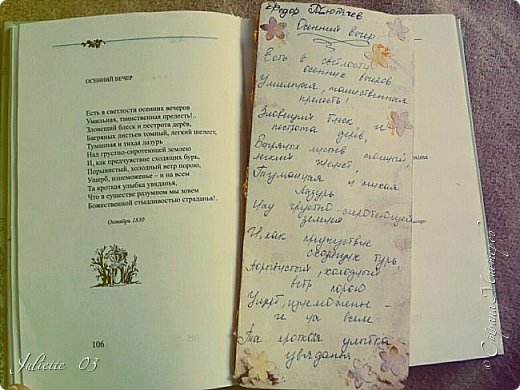 ОСЕННИЙ ВЕЧЕР
Есть в светлости осенних вечеров
Умильная, таинственная прелесть!..
Зловещий блеск и пестрота дерёв,
Багряных листьев томный, легкий шелест,
Туманная и тихая лазурь
Над грустно-сиротеющей землею
И, как предчувствие сходящих бурь,
Порывистый, холодный ветр порою,
Ущерб, изнеможенье - и на всем
Та кроткая улыбка увяданья,
Что в существе разумном мы зовем
Божественной стыдливостью страданья!.
Октябрь 1830
106
Федор Тютчев
Осенний вечер
Есть в светлости
осенних вечеров
Умильная, таинственная
прелесть!
Зловещий блеск и
пестрота дерёв,
Багряных листьев
легкий шелест,
Туманная и тихая
лазурь
Над грустно-сиротеющей
землею
И, как
сходящих бурь,
Порывистый, холодный
ветр порою
Ущерб, изнеможенье -
и на всем
Та кроткая улыбка
увяданья
Juliette 03